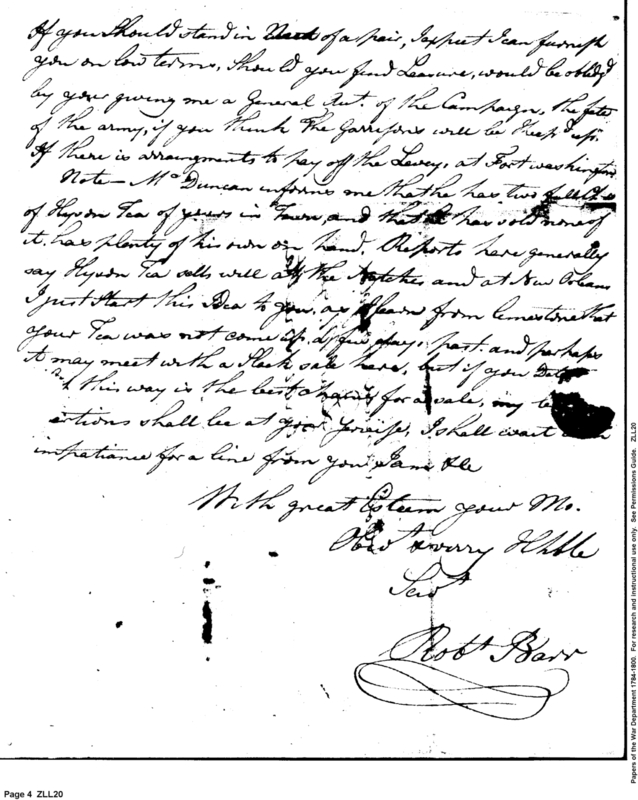 If you Should stand in Need of a pair, I expect I can furnish
you on low terms, Should you find Leasure, would be oblidg'd
by your giving me a General Act. of the Campaign, the fate
of the army, if you think the Garrisons will be Keep'd up.
If there is arrangments to pay off the Levey, at Fort washington
Note – Mr Duncan informs me that he has two
of Hyson Tea of yours in Town, and that he has sold none of
it, has plenty of his own on hand. Reports here generally
say Hyson Tea sells well at the Natches and at New Orleans
I just Start this Idea to you, as I learn from limestone that
your Tea was not come up, a few days, past. and perhaps
it may meet with a Slack sale here, but if you
this way is the best chance for a sale, my
ertions shall be at your Service, I shall wait
impatiance for a line from you I am &c
With great Esteem your Mo.
Obedt & verry Hble
Servt
Robt Barr
Page 4 ZLL20
Papers of the War Department 1784-1800. For research and instructional use only. See Permissions Guide. ZLL20